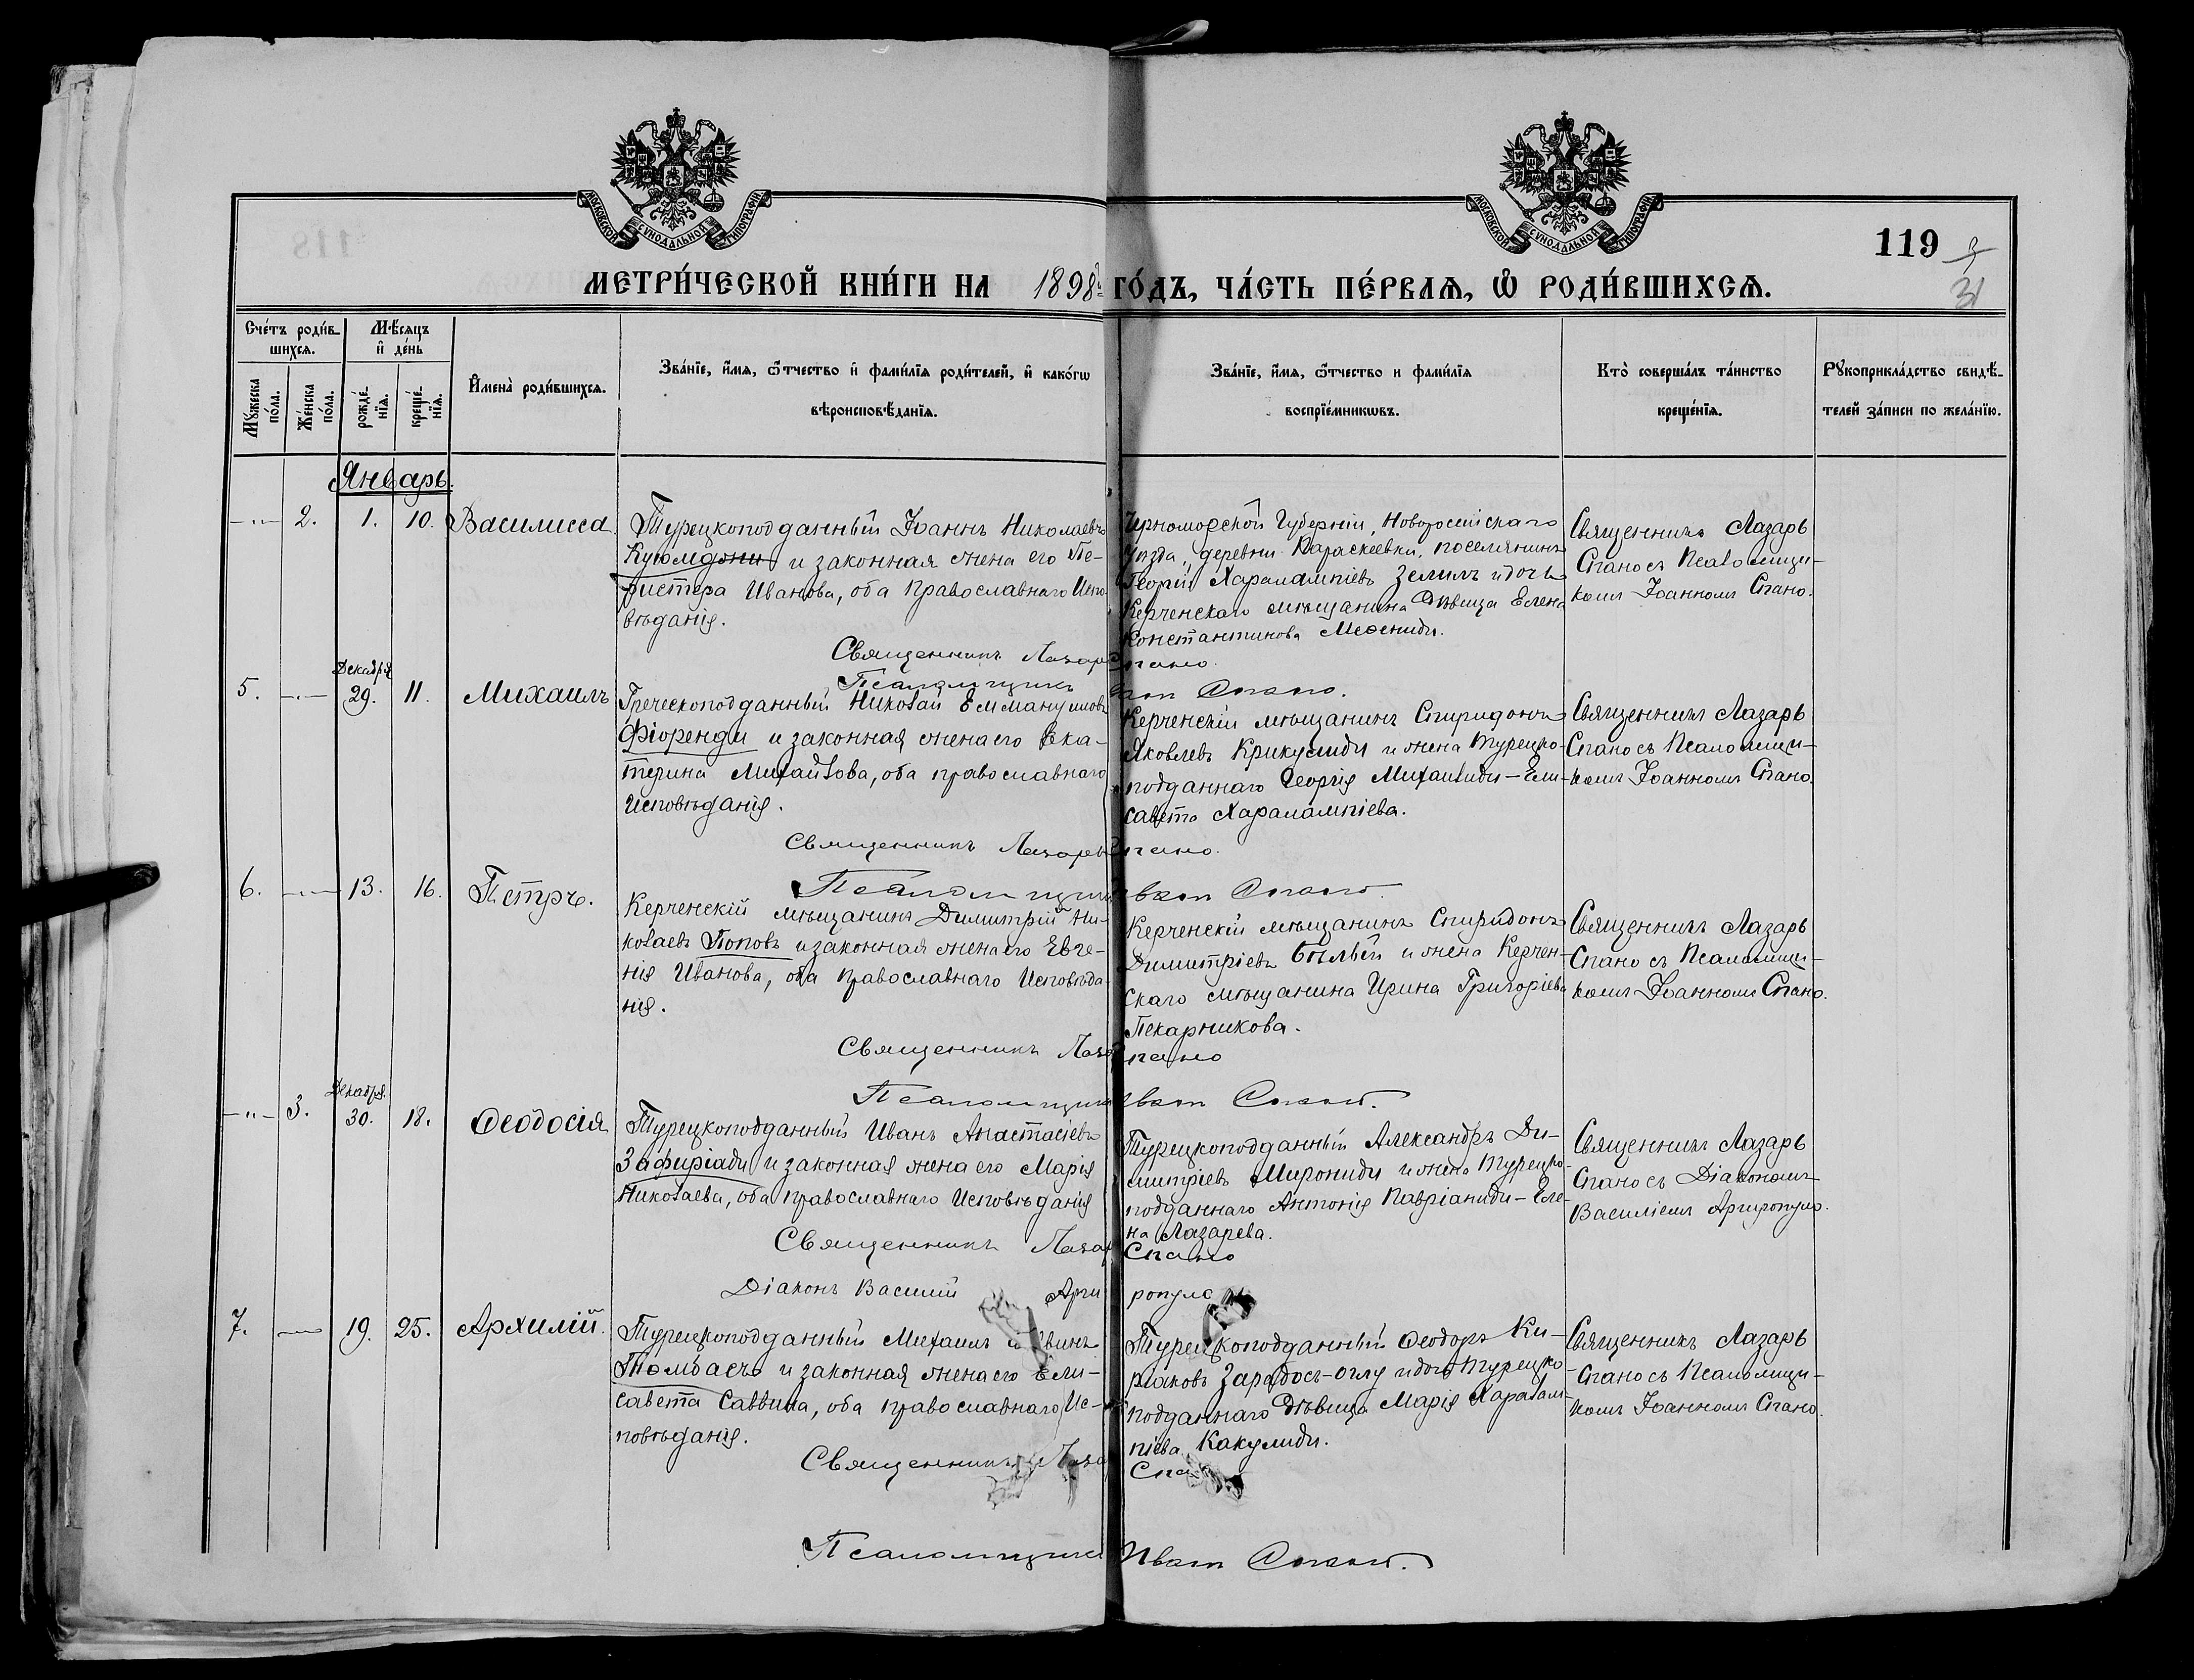 МОСКОВСКОЙ СѴНОДАЛЬНОЙ ТИПОГРАФІИ
МОСКОВСКОЙ СѴНОДАЛЬНОЙ ТИПОГРАФІИ
119
31
МЕТРИ́ЧЕСКОЙ КНИ́ГИ НА 1898й ГО́ДЪ, ЧА́СТЬ ПЕ́РВАЯ, Ѡ҆ РОДИ́ВШИХСЯ.
Сче́тъ роди́в-
шихся.
Мѣ́сяцъ
и҆ де́нь
Мꙋ́жеска по́ла.
Же́нска по́ла.
рожде́-
нїя.
креще́-
нїя.
И҆мена̀ роди́вшихся.
Зва́нїе, и҆́мя, ѻ҆́тчество и҆ фами́лїя роди́телей, и҆ како́гѡ
вѣроисповѣ́данїя.
Зва́нїе, и҆́мя, ѻ҆́тчество и фами́лїя
воспрїе́мникѡвъ.
Кто̀ соверша́лъ та́инство
креще́нїя.
Рꙋкоприкла́дство свидѣ́-
телей за́писи по жела́нїю.
Январь.
-"- 2. 1. 10. Василисса
Турецкоподданный Іоаннъ Николаевъ
Куюмджи и законная жена его Пе-
ристера Иванова, оба Православнаго Испо-
вѣданія.
Черноморской Губерніи, Новоросійскаго
уѣзда, деревни Параскеевки, поселянинъ
Георгій Харалампіевъ Зелилъ и дочь
Керченскаго мѣщанина Дѣвица Елена
Константинова Мефениди.
Священникъ Лазарь
Спано съ Псаломщи-
комъ Іоанномъ Спано.
Священникъ Лазарь Спано.
Псаломщикъ Иван Спано.
5. -"- Декабря 29. 11. Михаилъ
Греческоподданный Николай Еммануиловъ
Фіоренди и законная жена его Ека-
терина Михайлова, оба православнаго
Исповѣданія.
Керченскій мѣщанинъ Спиридонъ
Яковлевъ Крикулиди и жена Турецко-
подданнаго Георгія Михаилиди – Ели-
савета Харалампіева.
Священникъ Лазарь
Спано съ Псаломщи-
комъ Іоанномъ Спано.
Священникъ Лазарь Спано.
Псаломщик Иван Спано
6. -"- 13. 16. Петръ.
Керченскій мѣщанинъ Димитрій Ни-
колаевъ Поповъ и законная жена его Евге-
нія Иванова, оба Православнаго Исповѣда-
нія.
Керченскій мѣщанинъ Спиридонъ
Димитріевъ Бѣлый и жена Керчен-
скаго мѣщанина Ирина Григоріева
Пекарникова.
Священникъ Лазарь
Спано съ Псаломщи-
комъ Іоанномъ Спано.
Священникъ Лазарь Спано
Псаломщик Иван Спано.
-"- 3. Декабря. 30. 18. Ѳеодосія
Турецкоподданный Иванъ Анастасіевъ
Зафиріади и законная жена его Марія
Николаева, оба Православнаго Исповѣданія
Турецкоподданный Александръ Ди-
митріевъ Мирониди и жена Турецко-
подданнаго Антонія Павріаниди – Еле-
на Лазарева.
Священникъ Лазарь
Спано съ Діакономъ
Василіемъ Аргиропуло.
Священникъ Лазарь Спано
Діаконъ Василій Аргиропуло
7. -"- 19. 25. Архилій.
Турецкоподданный Михаилъ
Томбаевъ и законная жена его Ели-
савета Саввина, оба православнаго Ис-
повѣданія.
Турецкоподданный Ѳеодоръ Ки-
ріаковъ Зарадосъ-оглу и дочь Турецко-
подданнаго Дѣвица Марія Харалам-
піева Какулиди.
Священникъ Лазарь
Спано съ Псаломщи-
комъ Іоанномъ Спано.
Священникъ Лазарь Спано
Псаломщик Иван Спано.